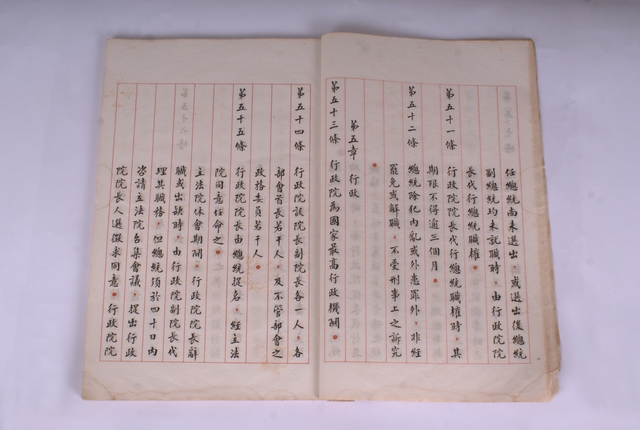 任總統尚未選出，或選出後總統
副總統均未就職時，由行政院院
長代行總統職權。
第五十一條　行政院院長代行總統職權時，其
期限不得逾三個月。
第五十二條　總統除犯內亂或外患罪外，非經
罷免或解職，不受刑事上之訴究
。
第五章　行政
第五十三條　行政院為國家最高行政機關。
第五十四條　行政院設院長副院長各一人，各
部會首長若干人，及不管部會之
政務委員若干人。
第五十五條　行政院院長由總統提名，經立法
院同意任命之。
立法院休會期間，行政院院長辭
職或出缺時，由行政院副院長代
理其職務，但總統須於四十日內
咨請立法院召集會議，提出行政
院院長人選徵求同意。行政院院